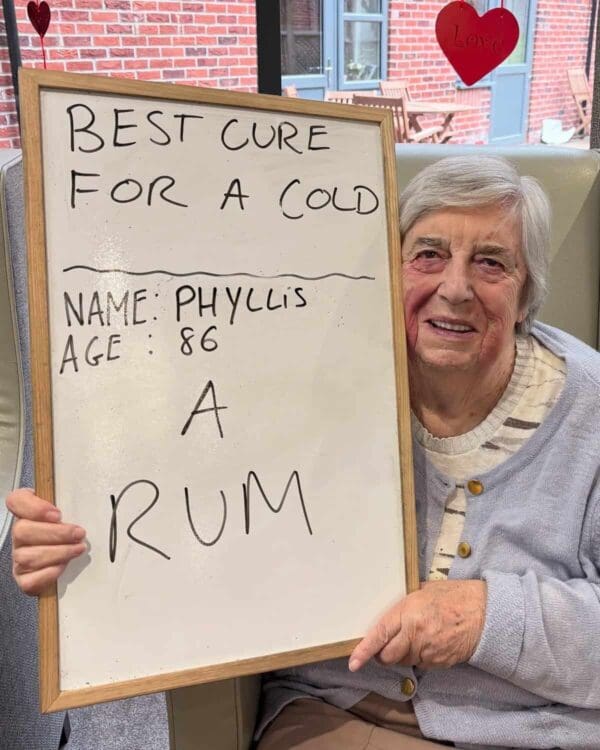 Love
BEST CURE
FOR A COLD
NAME: PHYLLIS
AGE : 86
A
RUM